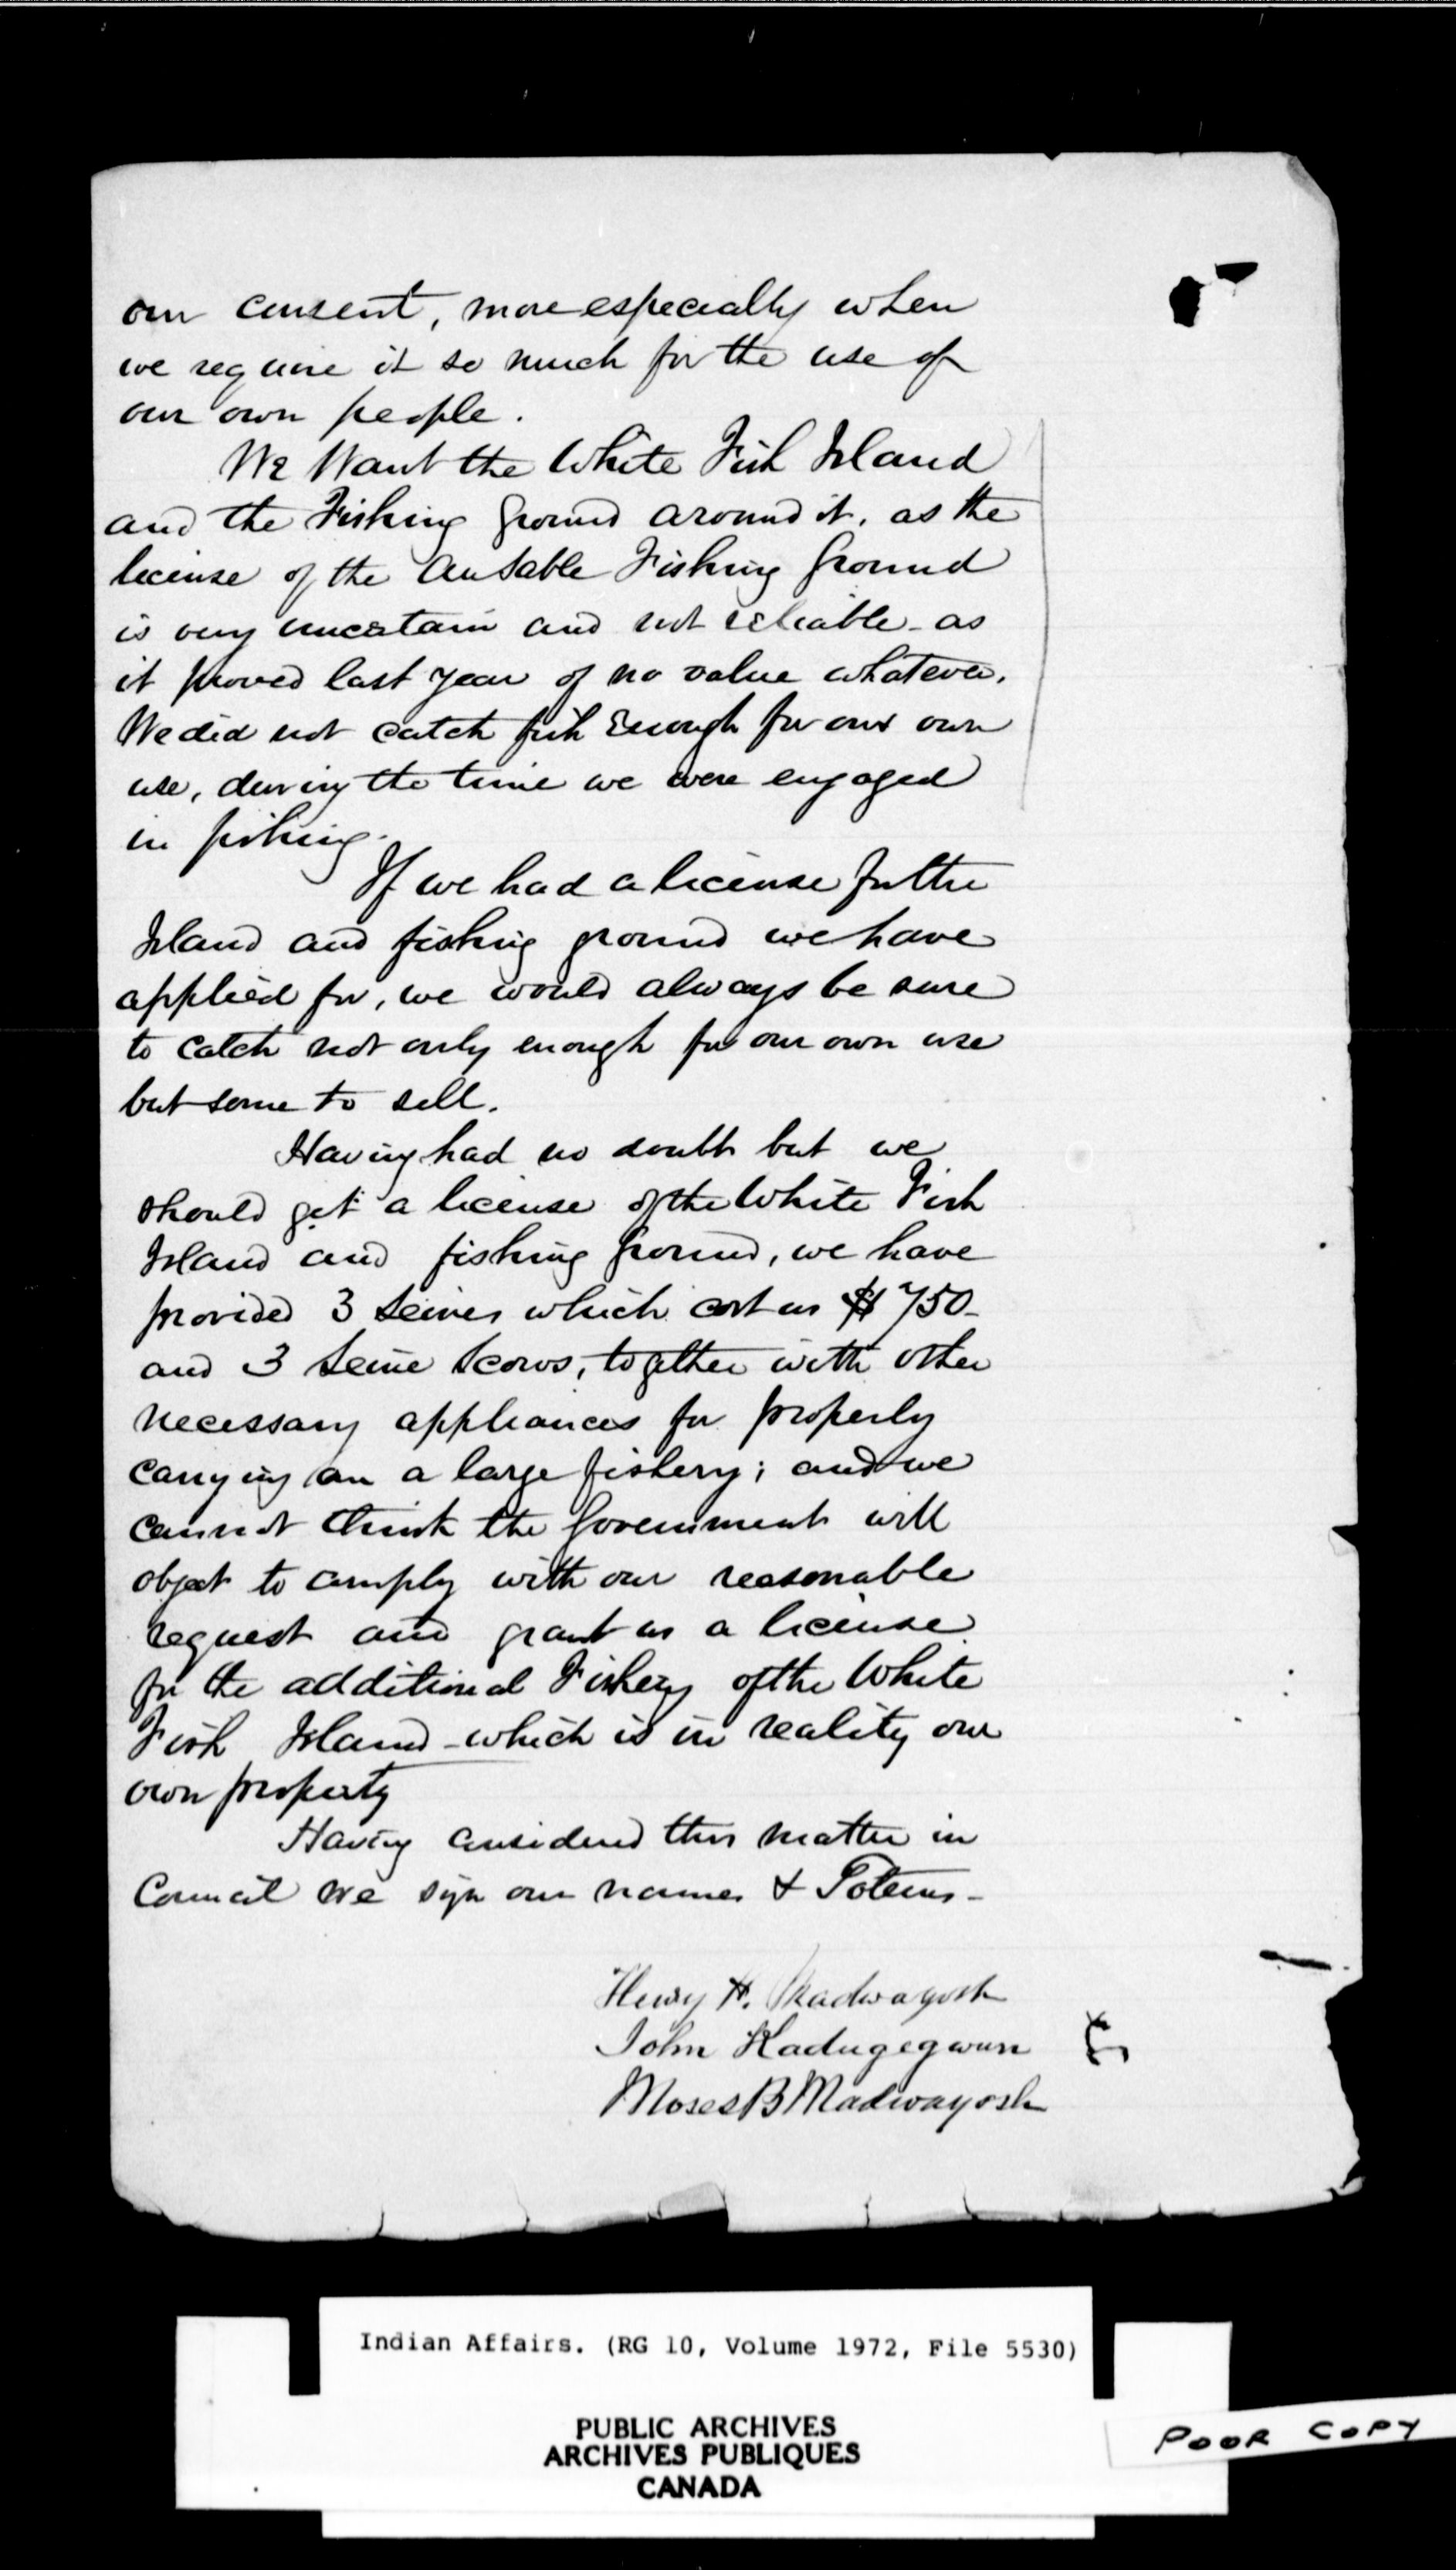 our consent, more especially when
we require it so much for the use of
our own people.
We Want the White Fish Island
and the Fishing Ground around it, as the
license of the Au Sable Fishing Ground
is very uncertain and not reliable - as
it proved last year of no value whatever.
We did not catch fish Enough for our own
use, during the time we were engaged
in fishing.
If we had a license for the
Island and fishing ground we have
applied for, we would always be sure
to catch not only enough for our own use
but some to sell.
Having had no doubt but we
should get a license of the White Fish
Island and fishing Ground, we have
provided 3 Seines which cost us $750-
and 3 Seine Scows, together with other
necessary appliances for properly
carrying on a large fishery; and we
cannot think the Government will
object to comply with our reasonable
request and grant us a license
for the additional Fishery of the White
Fish Island - which is in reality our
own property
Having considered this matter in
Council we sign our names & Totems -
Henry H. Madwayosh
John Kadugegwun
Moses B Madwayosh
Indian Affairs. (RG 10, Volume 1972, File 5530)
PUBLIC ARCHIVES
ARCHIVES PUBLIQUES
CANADA
POOR COPY